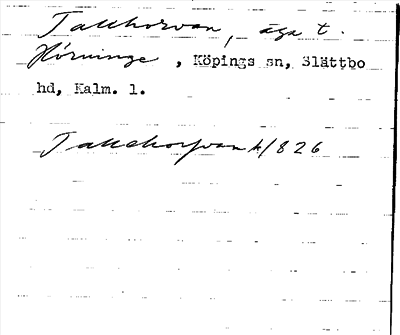 Tallhorvan, äga t.
Hörninge, Köpings sn, Slättbo
hd, Kalm. l.
Tallehorfvan k/826